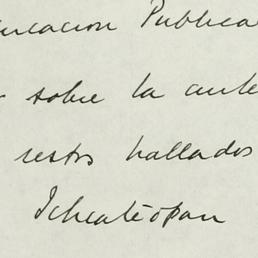 ucacion Publica
sobre la aute
restos hallados
Ichcateopan